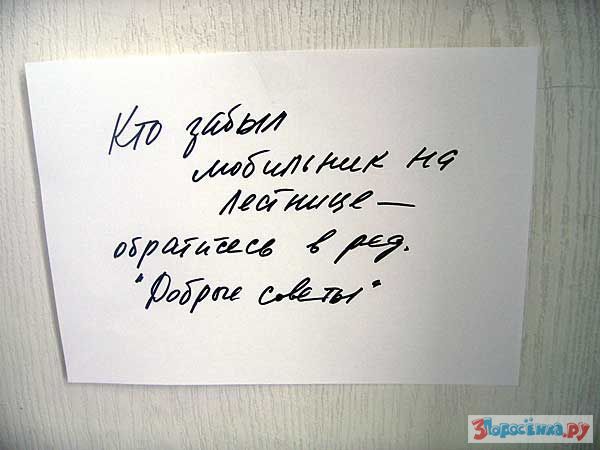 Кто забыл
мобильник на
лестнице —
обратитесь в ред.
"Добрые советы"
3Поросёнка.ру